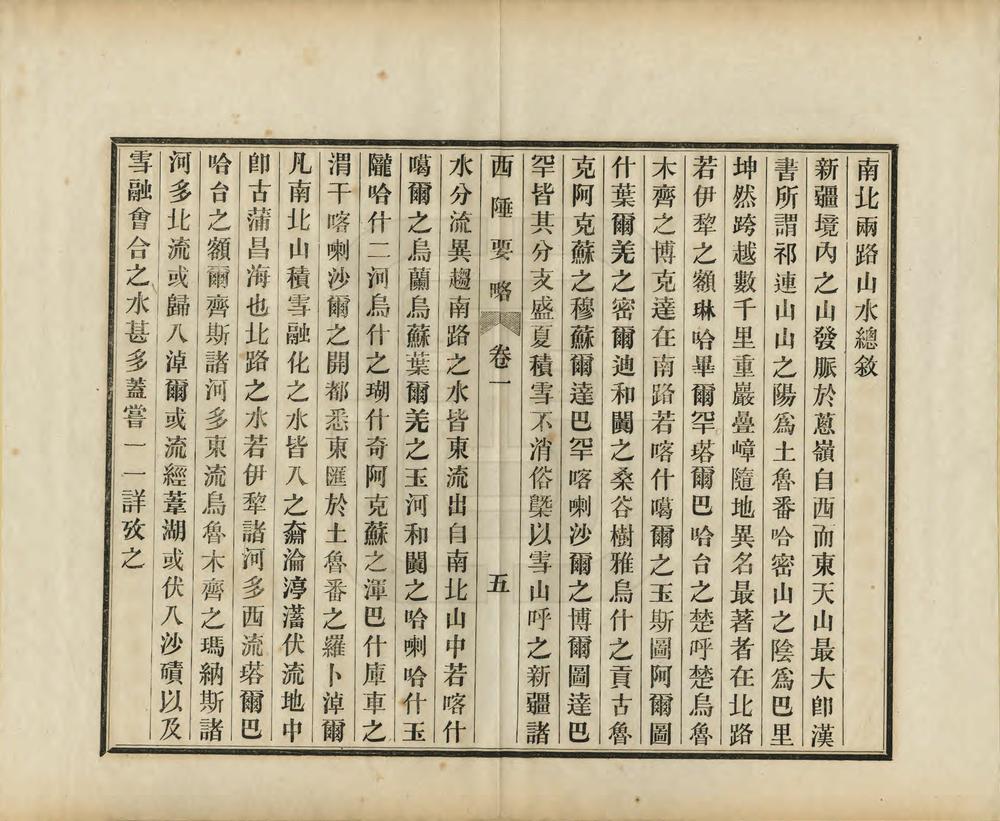 南北兩路山水總敘
新疆境內之山發脈於蔥嶺自西而東天山最大卽漢
書所謂祁連山山之陽爲土魯番哈密山之陰爲巴里
坤然跨越數千里重巖疊嶂隨地異名最著者在北路
若伊犂之額琳哈畢爾罕塔爾巴哈台之楚呼楚烏魯
木齊之博克達在南路若喀什噶爾之玉斯圖阿爾圖
什葉爾羌之密爾迪和闐之桑谷樹雅烏什之貢古魯
克阿克蘇之穆蘇爾達巴罕喀喇沙爾之博爾圖達巴
罕皆其分支盛夏積雪不消俗槩以雪山呼之新疆諸
西陲要略 卷一 五
水分流異趨南路之水皆東流出自南北山中若喀什
噶爾之烏蘭烏蘇葉爾羌之玉河和闐之哈喇哈什玉
隴哈什二河烏什之瑚什奇阿克蘇之渾巴什庫車之
渭干喀喇沙爾之開都悉東匯於土魯番之羅卜淖爾
凡南北山積雪融化之水皆入之奫淪渟瀦伏流地中
卽古蒲昌海也北路之水若伊犂諸河多西流塔爾巴
哈台之額爾齊斯諸河多東流烏魯木齊之瑪納斯諸
河多北流或歸入淖爾或流經葦湖或伏入沙磧以及
雪融會合之水甚多蓋嘗一一詳攷之